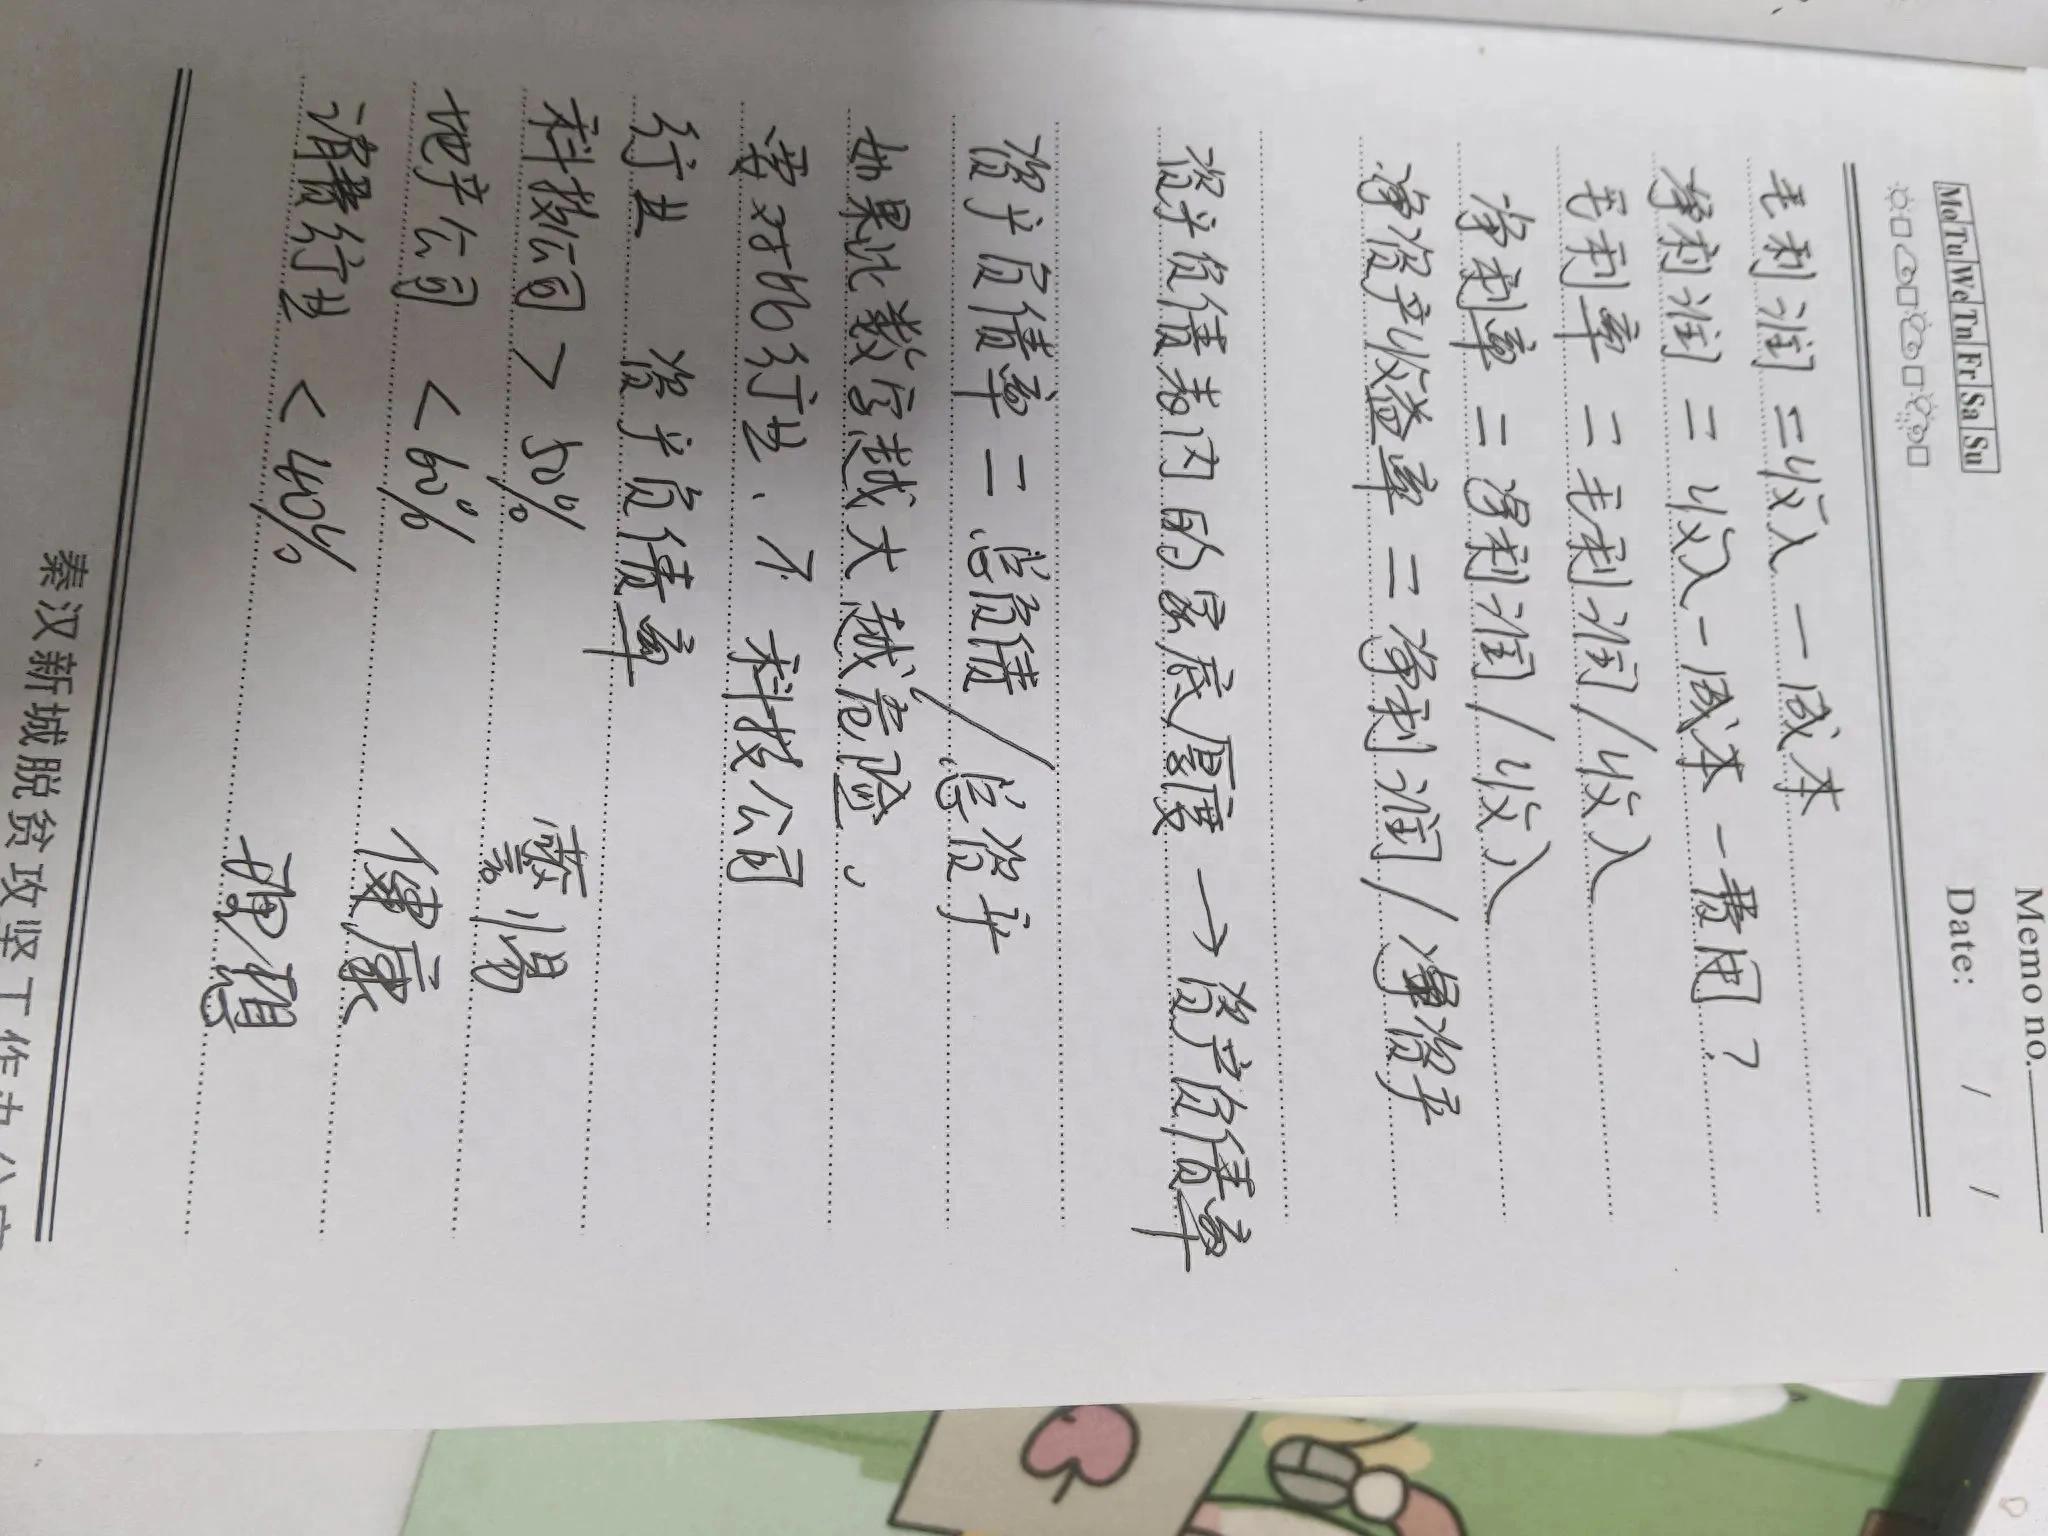 Memo no.
Mo Tu We Tn Fr Sa Su
Date: / /
毛利润=收入-成本
净利润=收入-成本-费用?
毛利率=毛利润/收入
净利率=净利润/收入
净资产收益率=净利润/净资产
资产负债表内的家底厚度→资产负债率
资产负债率=总负债/总资产
如果此数字越大越危险。
要对比行业、个 科技公司
行业 资产负债率
科技公司 > 50%
地产公司 < 60% 
消费行业 < 40%
健康
秦汉新城脱贫攻坚工作办公室